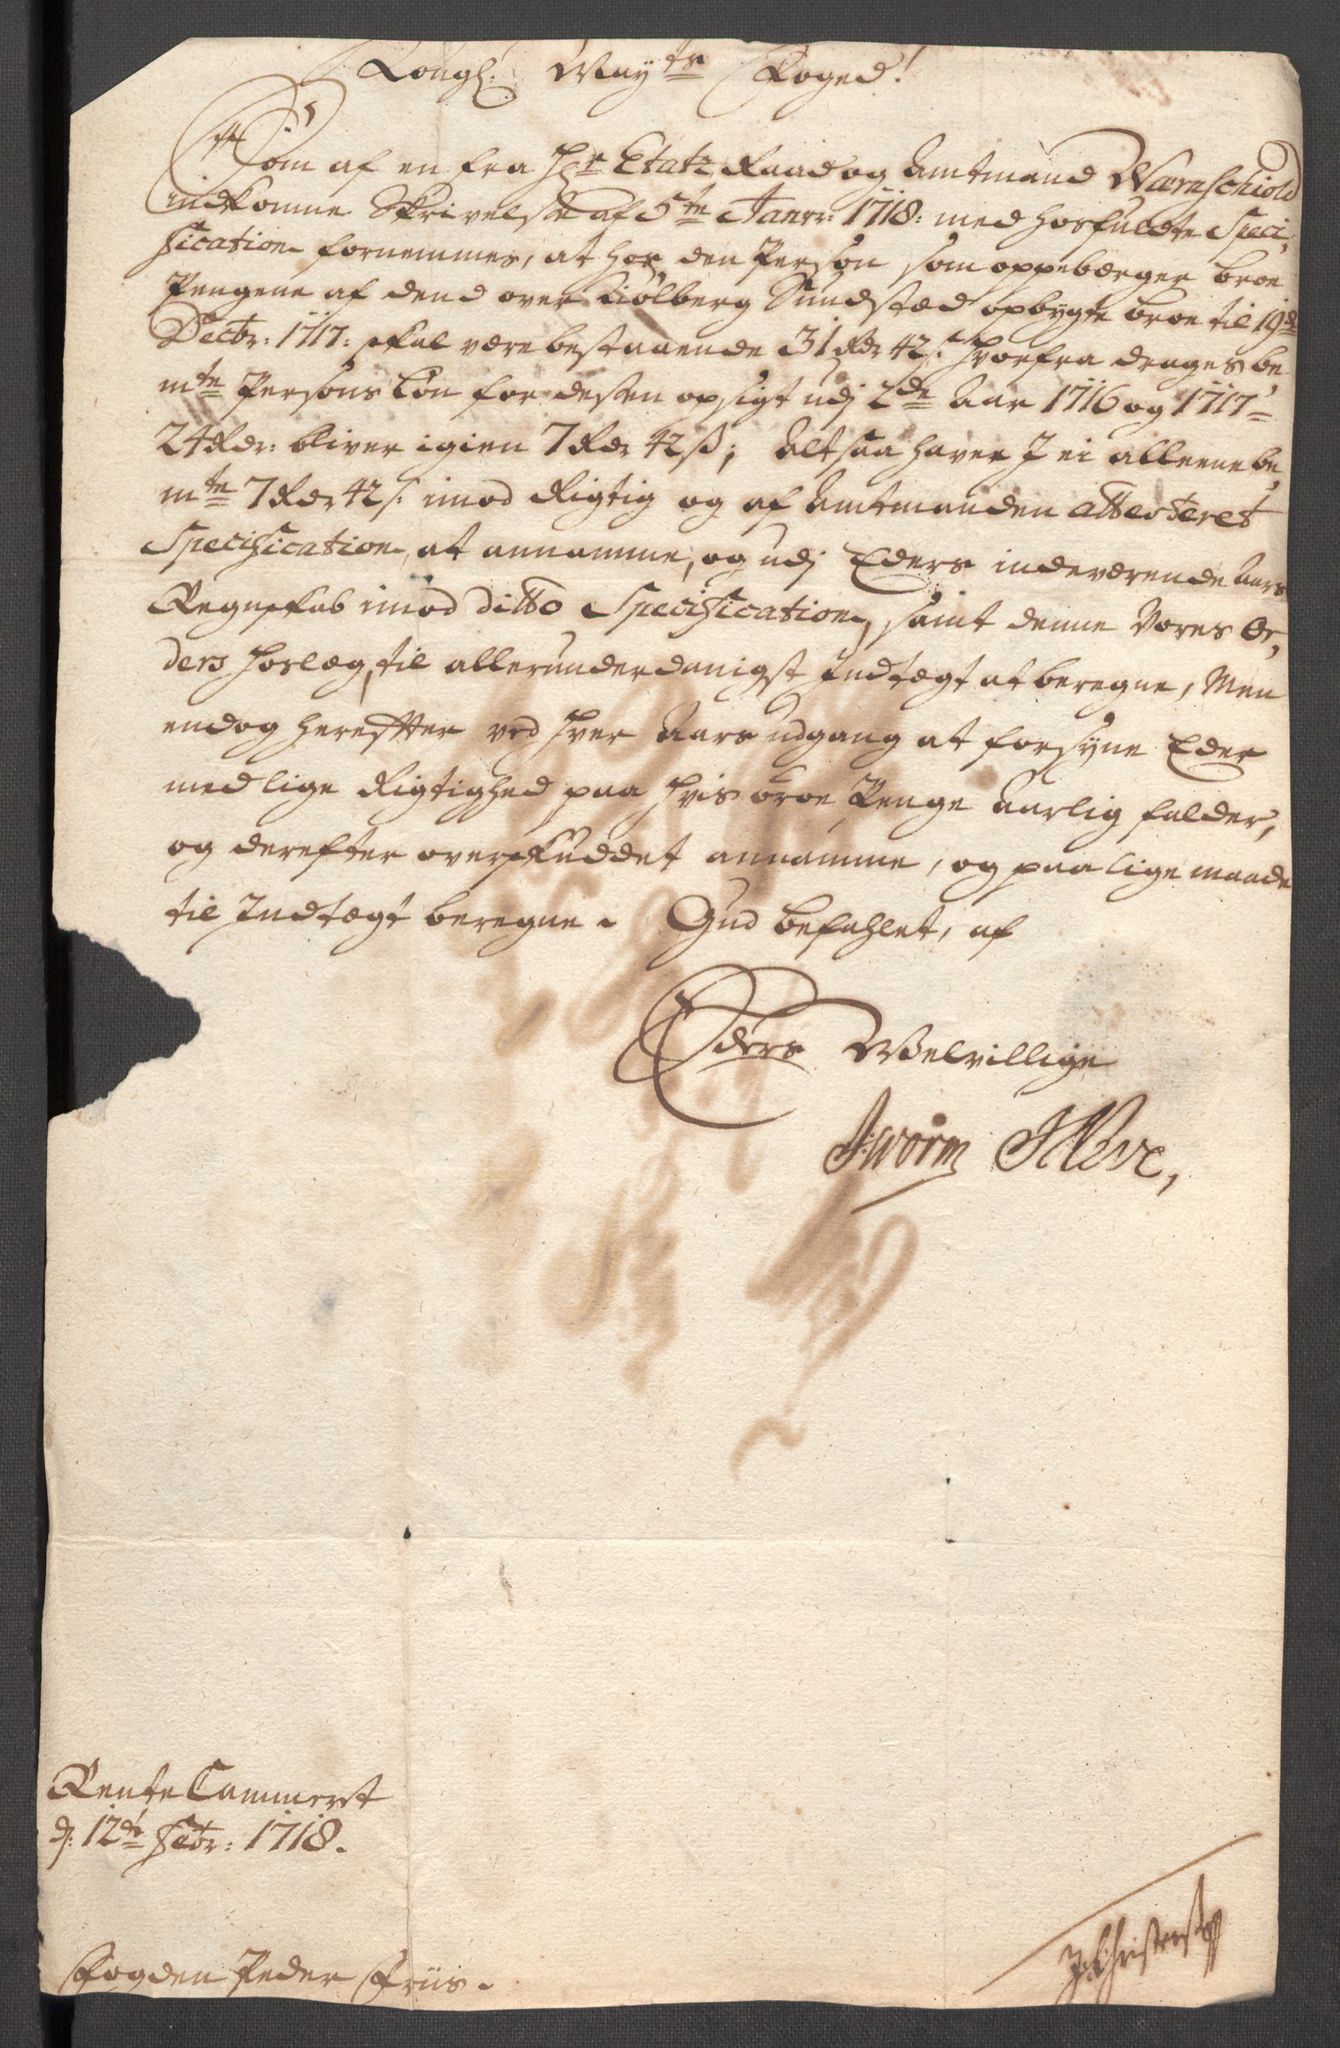 Kongl: Mayts Foged!
Som af en fra Hr Etatz Raad og Amtmand Warnschiold
indkomne Skrivelse af 5te Janrr: 1718: med hosfuldte Speci,
fication fornemmes, at hos den Person som oppebærger broe
Pengene af dend over Kiølberg Sundstæd opbygte broe til 19de
Decbr: 1717: skal være bestaaende 31 Rdr 42 s. hvorfra drages be,
mte Persons Løn for dessen opsigt udj 2de Aar 1716 og 1717
24 Rdr: bliver igien 7 Rdr 42 ß; Alt saa haver I ei alleene be,
mte 7 Rdr 42 s: imod Rigtig og af Amtmanden atterteret
Specification, at annamme, og udj Eders indeværende Aars
Regnskab imod ditto Specification, samt denne Vores Or,
ders Forlæg, til allerunderdanigst Indtægt at beregne, Men
endog herefter ved hver Aars udgang at forsyne Eder
med lige Rigtighed paa hvis broe Penge Aarlig falder,
og derefter overskuddet annamme, og paa lige maade
til Indtægt beregne. Gud befahlet, af
Eders Welvillige
J Worm
Rente Cammerет
d: 12te Febr: 1718.
Fogden Peder Friis.